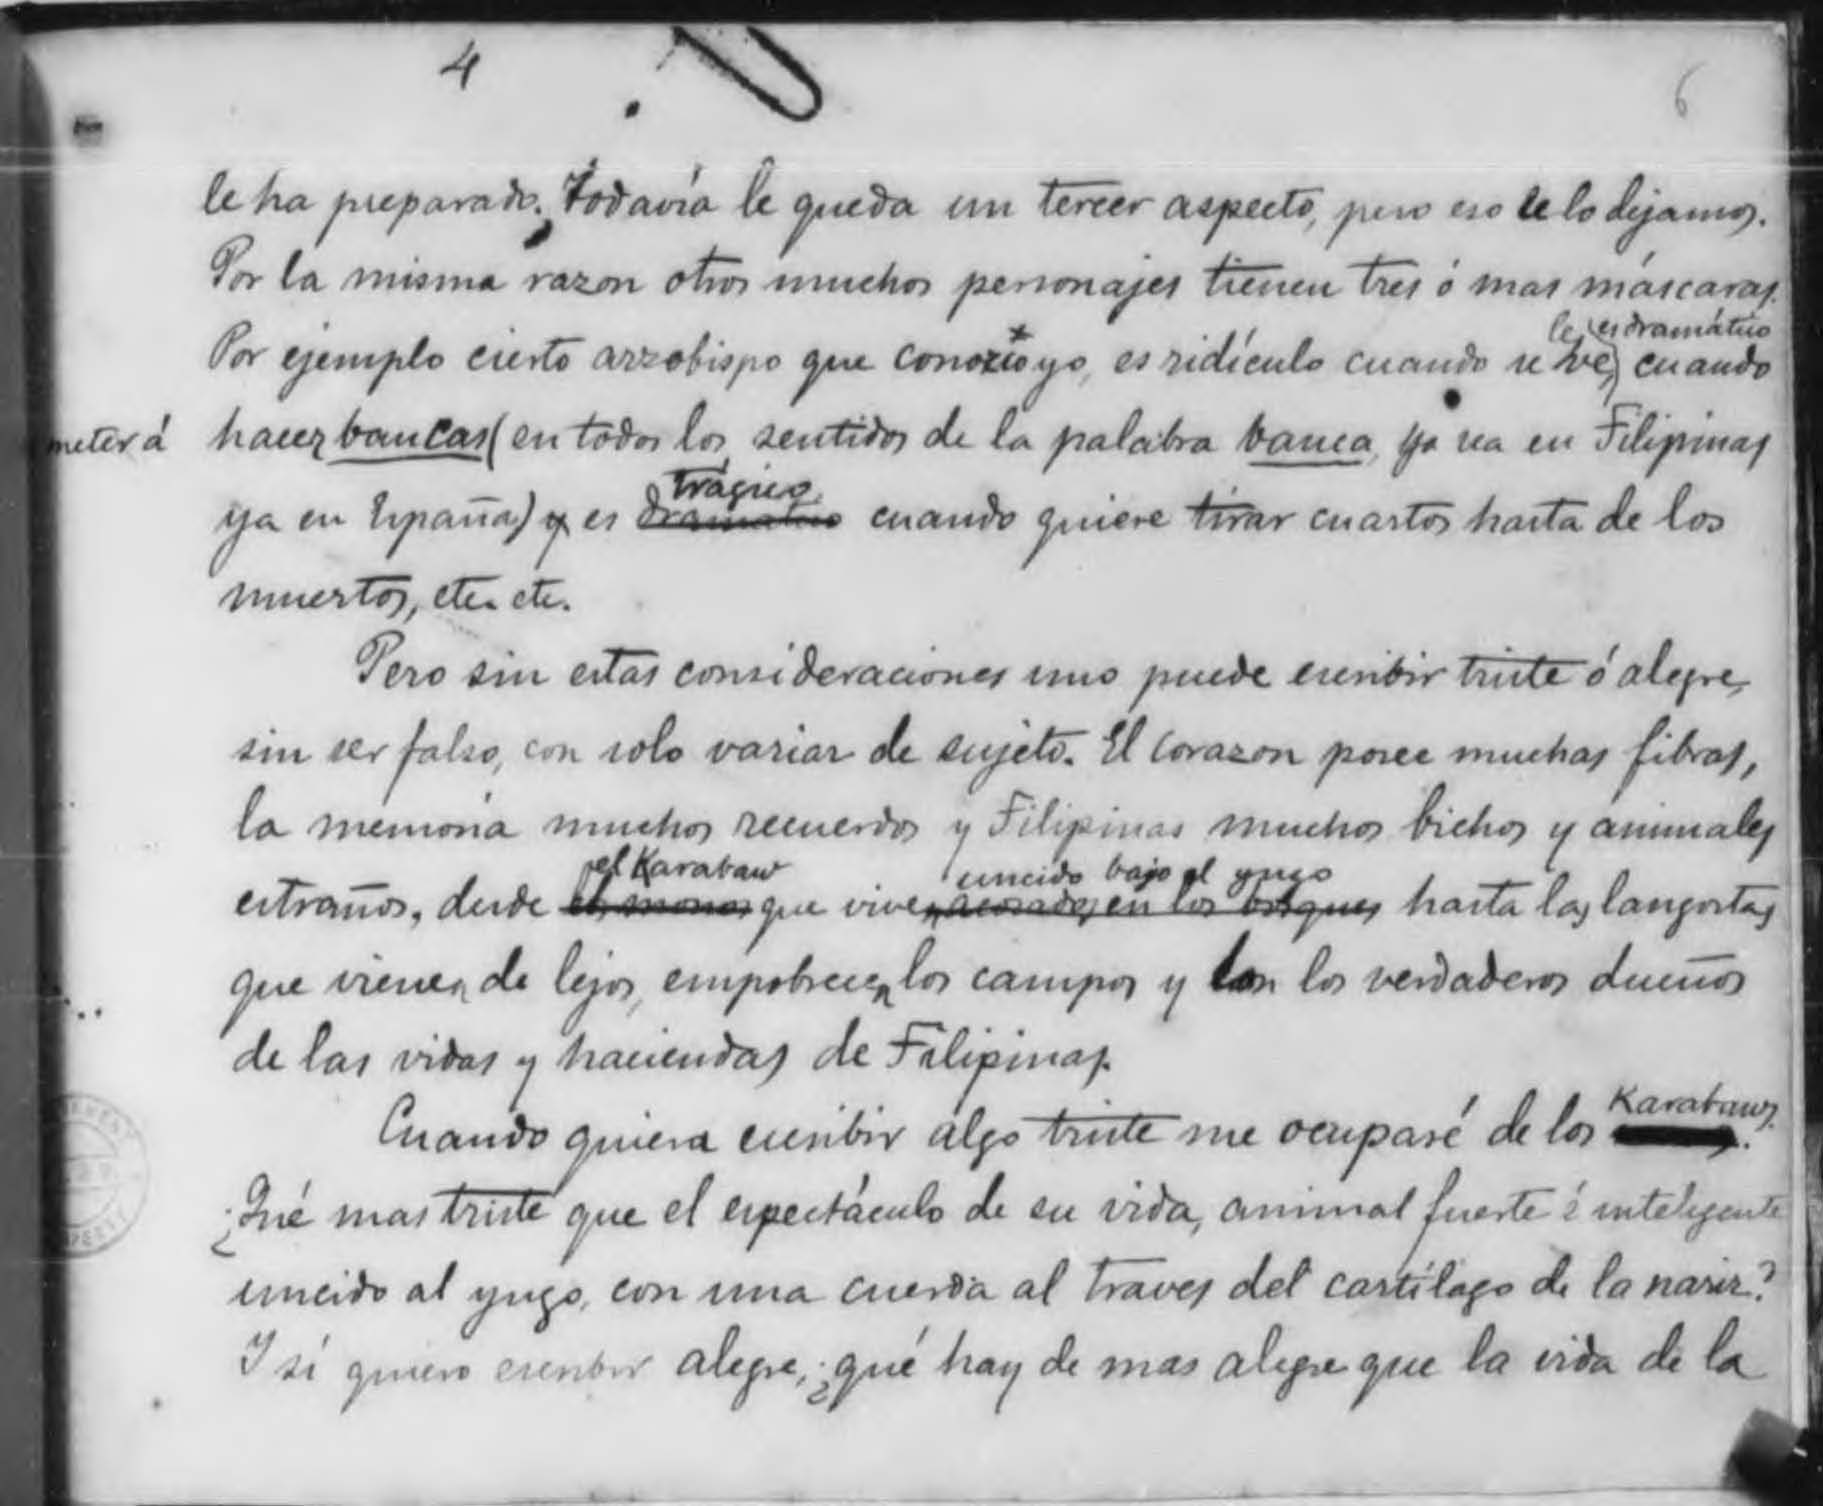 4
6
le ha preparado. Todavía le queda un tercer aspecto, pero eso se lo dejamos.
Por la misma razon otros muchos personajes tienen tres ó mas máscaras.
le, es dramático
Por ejemplo cierto arzobispo que conozco yo, es ridículo cuando se ve, cuando
meter á hacer bancas (en todos los sentidos de la palabra banca, ya sea en Filipinas
trágico
ya en España) y es dramatico cuando quiere tirar cuartos hasta de los
muertos, etc. etc.
Pero sin estas consideraciones uno puede escribir triste ó alegre,
sin ser falso, con solo variar de sujeto. El corazon posee muchas fibras,
la memoria muchos recuerdos y Filipinas muchos bichos y animales
el Karabaw uncido bajo el yugo
estraños, desde los monos que viven en los bosques hasta las langostas
que vienen de lejos, empobrecen los campos y son los verdaderos dueños
de las vidas y haciendas de Filipinas.
Karabaws.
Cuando quiera escribir algo triste me ocuparé de los
¿Qué mas triste que el espectáculo de su vida, animal fuerte é inteligente
uncido al yugo, con una cuerda al traves del cartílago de la nariz?
Y si quiero escribir alegre, ¿qué hay de mas alegre que la vida de la